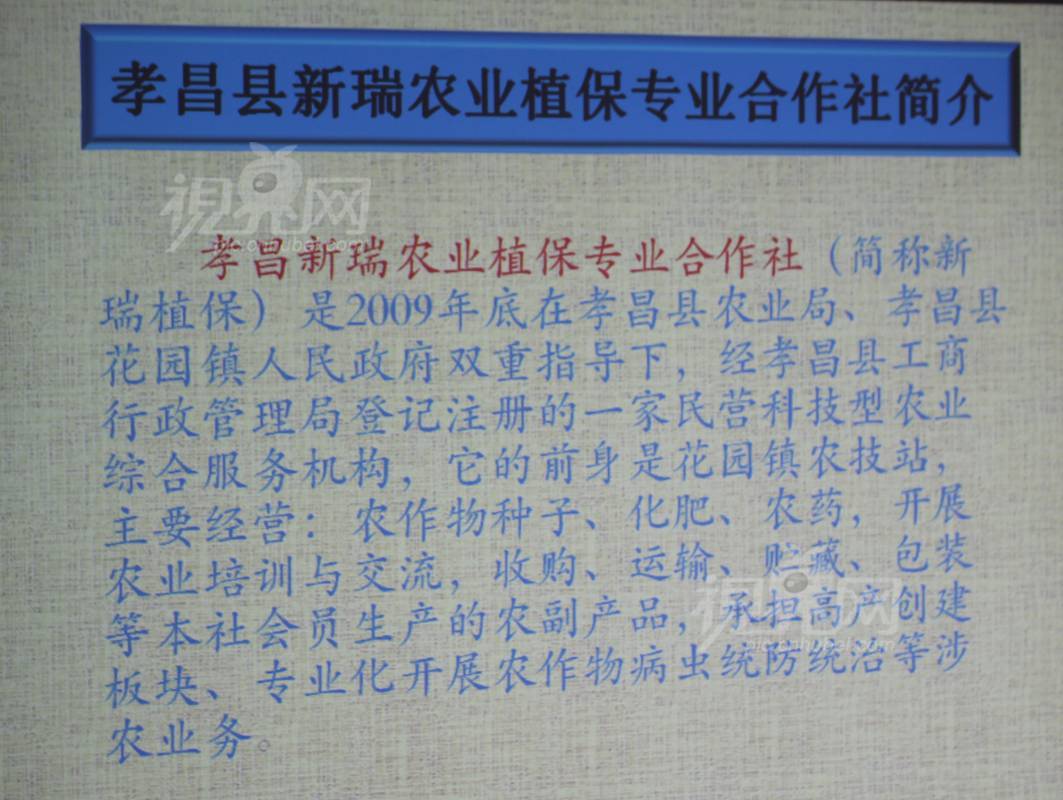 孝昌县新瑞农业植保专业合作社简介
视界网
孝昌新瑞农业植保专业合作社（简称新
瑞植保）是2009年底在孝昌县农业局、孝昌县
花园镇人民政府双重指导下，经孝昌县工商
行政管理局登记注册的一家民营科技型农业
综合服务机构，它的前身是花园镇农技站，
主要经营：农作物种子、化肥、农药，开展
农业培训与交流，收购、运输、贮藏、包装
等本社会员生产的农副产品，承担高产创建
板块、专业化开展农作物病虫统防统治等涉
农业务。